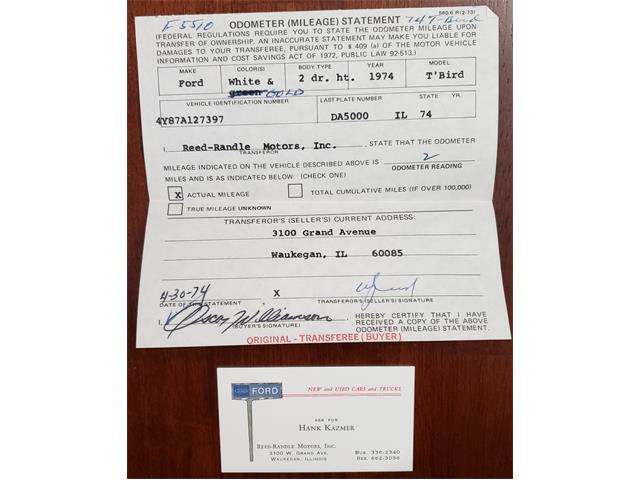 F5510 747-Bird
580.6 R(2-73)
ODOMETER (MILEAGE) STATEMENT
(FEDERAL REGULATIONS REQUIRE YOU TO STATE THE ODOMETER MILEAGE UPON
TRANSFER OF OWNERSHIP. AN INACCURATE STATEMENT MAY MAKE YOU LIABLE FOR
DAMAGES TO YOUR TRANSFEREE, PURSUANT TO § 409 (a) OF THE MOTOR VEHICLE
INFORMATION AND COST SAVINGS ACT OF 1972, PUBLIC LAW 92-513.)
MAKE COLOR(S) BODY TYPE YEAR MODEL
Ford White & 2 dr. ht. 1974 T'Bird
green GOLD
VEHICLE IDENTIFICATION NUMBER LAST PLATE NUMBER STATE YR.
4Y87A127397 DA5000 IL 74
I, Reed-Randle Motors, Inc. , STATE THAT THE ODOMETER
TRANSFEROR
MILEAGE INDICATED ON THE VEHICLE DESCRIBED ABOVE IS 2
ODOMETER READING
MILES AND IS AS INDICATED BELOW: (CHECK ONE)
X ACTUAL MILEAGE TOTAL CUMULATIVE MILES (IF OVER 100,000)
TRUE MILEAGE UNKNOWN
TRANSFEROR'S (SELLER'S) CURRENT ADDRESS:
3100 Grand Avenue
Waukegan, IL 60085
4-30-74 X
DATE OF THIS STATEMENT TRANSFEROR'S (SELLER'S) SIGNATURE
I, Oscar Williamson , HEREBY CERTIFY THAT I HAVE
(BUYER'S SIGNATURE) RECEIVED A COPY OF THE ABOVE
ODOMETER (MILEAGE) STATEMENT.
ORIGINAL - TRANSFEREE (BUYER)
FORD
NEW and USED CARS and TRUCKS
ASK FOR
HANK KAZMER
REED-RANDLE MOTORS, INC.
3100 W. GRAND AVE. BUS. 336-2340
WAUKEGAN, ILLINOIS RES. 662-3056